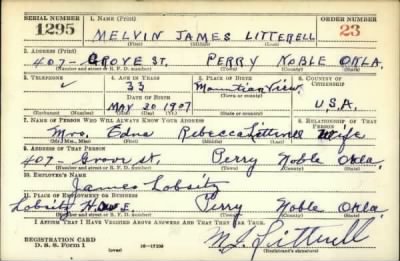 SERIAL NUMBER 1. NAME (Print) ORDER NUMBER
1295 MELVIN JAMES LITTERELL 23
(First) (Middle) (Last)
2. ADDRESS (Print)
407- GROVE ST. PERRY NOBLE OKLA.
(Number and street or R. F. D. number) (Town) (County) (State)
3. TELEPHONE 4. AGE IN YEARS 5. PLACE OF BIRTH 6. COUNTRY OF CITIZENSHIP
33 Mountian View
DATE OF BIRTH (Town or county)
MAY 20 1907 U.S.A.
(Exchange) (Number) (Mo.) (Day) (Yr.) (State or country)
7. NAME OF PERSON WHO WILL ALWAYS KNOW YOUR ADDRESS 8. RELATIONSHIP OF THAT PERSON
Mrs. Edna Rebecca Litterell Wife
(Mr., Mrs., Miss) (First) (Middle) (Last)
9. ADDRESS OF THAT PERSON
407- Grove st. Perry Noble Okla.
(Number and street or R. F. D. number) (Town) (County) (State)
10. EMPLOYER'S NAME
James Lobsitz
11. PLACE OF EMPLOYMENT OR BUSINESS
Lobsitz Perry Noble Okla.
(Number and street or R. F. D. number) (Town) (County) (State)
I AFFIRM THAT I HAVE VERIFIED ABOVE ANSWERS AND THAT THEY ARE TRUE.
REGISTRATION CARD
D. S. S. Form 1 (over) 16-17105
(Registrant's signature)